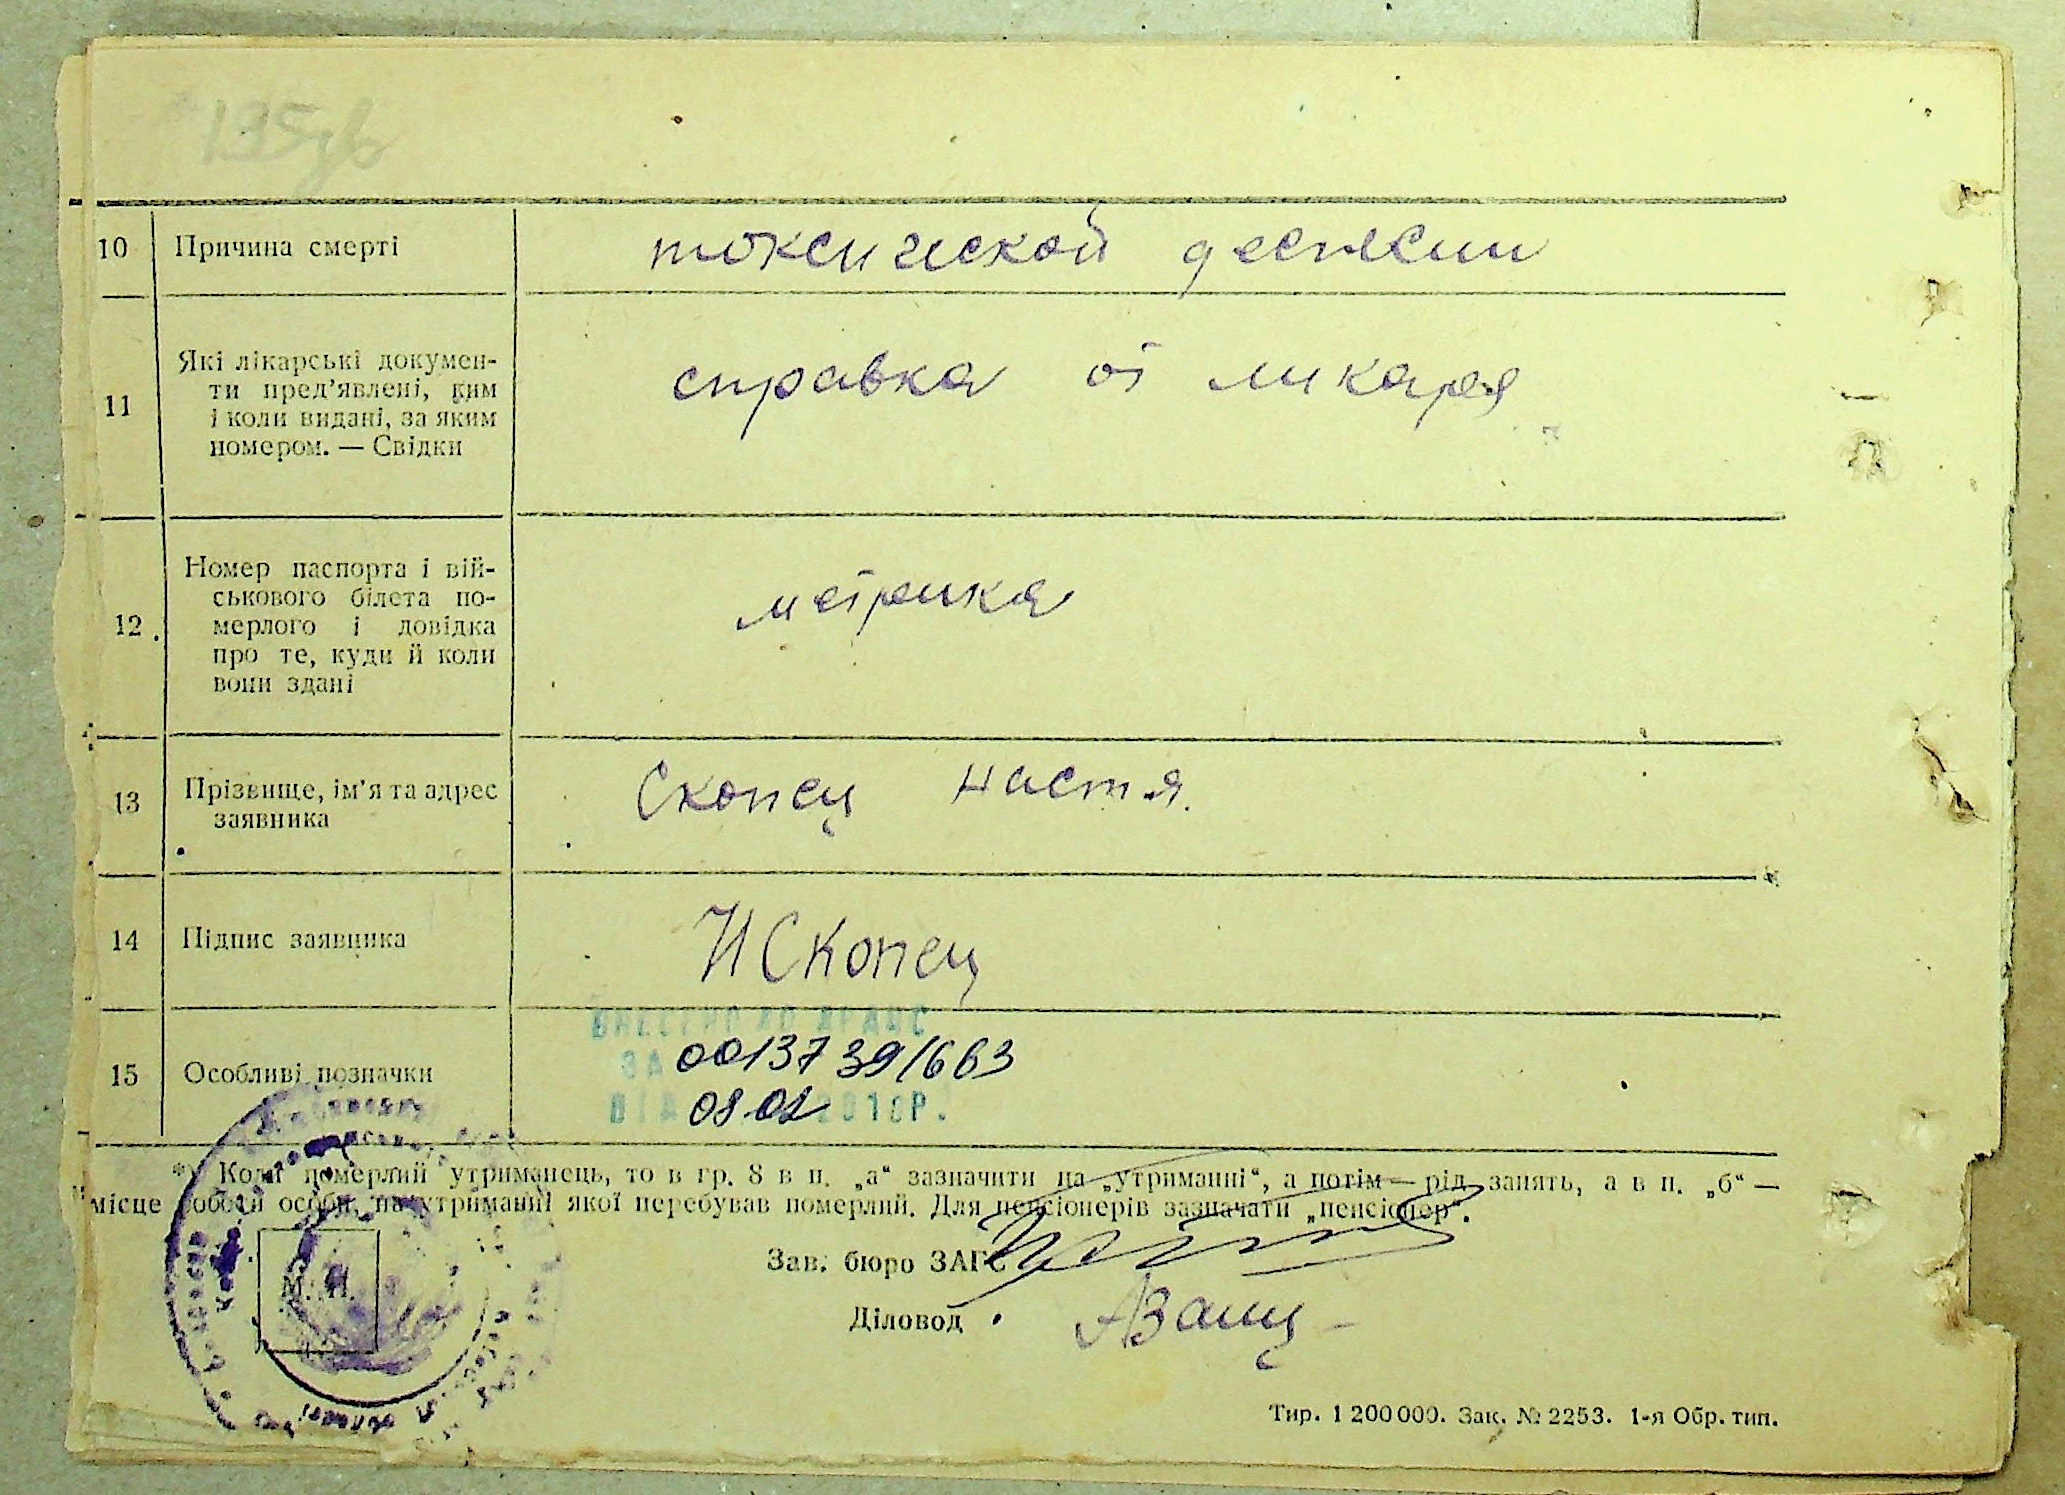 135зв
10 Причина смерті токсической
11 Які лікарські докумен-
ти пред’явлені, ким
і коли видані, за яким
номером. — Свідки
справка от ликаря
12. Номер паспорта і вій-
ськового білета по-
мерлого і довідка
про те, куди й коли
вони здані
метрика
13 Прізвище, ім’я та адрес
заявника
Скопец Настя.
14 Підпис заявника НСкопец
ВНЕСЕНО ДО ДРАЦС
15 Особливі позначки ЗА 0013739/663
ВІД 08.02 2018Р.
*) Коли померлий утриманець, то в гр. 8 в п. „а“ зазначити на „утриманні“, а потім — рід занять, а в п. „б“ —
місце роботи особи, на утриманні якої перебував померлий. Для пенсіонерів зазначати „пенсіонер“.
Зав. бюро ЗАГС
М. П.
Діловод
Тир. 1 200 000. Зак. № 2253. 1-я Обр. тип.